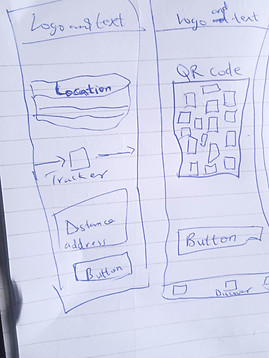 Logo and text
Location
Tracker
Dstance
address
Button
Logo and text
QR code
Button
Discover